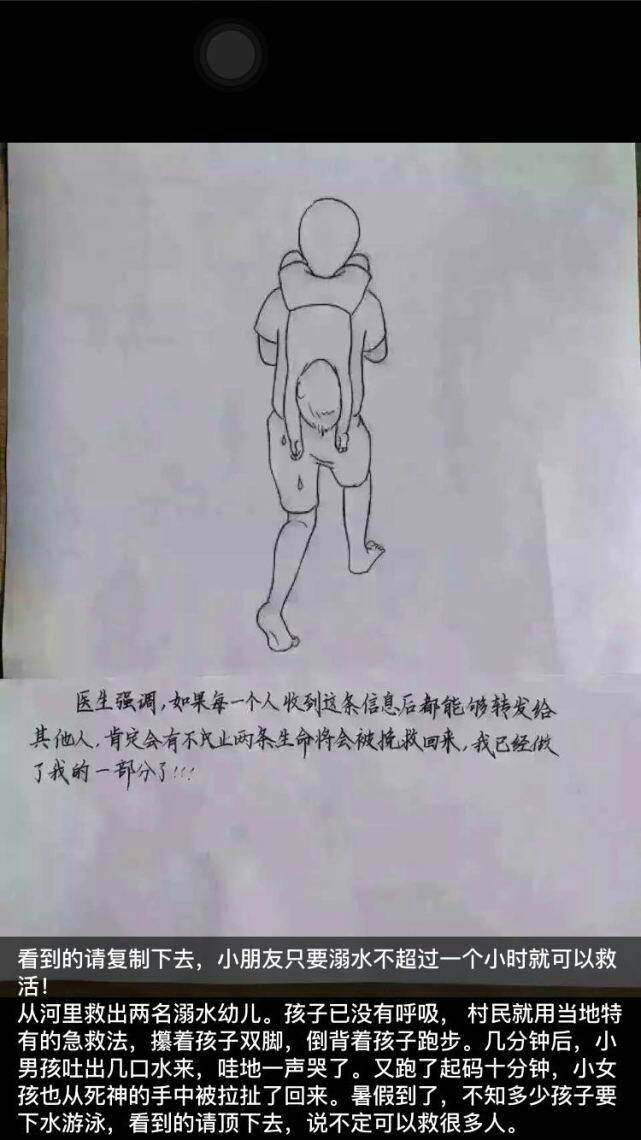 医生强调,如果每一个人收到这条信息后都能够转发给
其他人,肯定会有不只止两条生命将会被挽救回来,我已经做
了我的一部分了!!!
看到的请复制下去，小朋友只要溺水不超过一个小时就可以救
活！
从河里救出两名溺水幼儿。孩子已没有呼吸， 村民就用当地特
有的急救法，攥着孩子双脚，倒背着孩子跑步。几分钟后，小
男孩吐出几口水来，哇地一声哭了。又跑了起码十分钟，小女
孩也从死神的手中被拉扯了回来。暑假到了，不知多少孩子要
下水游泳，看到的请顶下去，说不定可以救很多人。